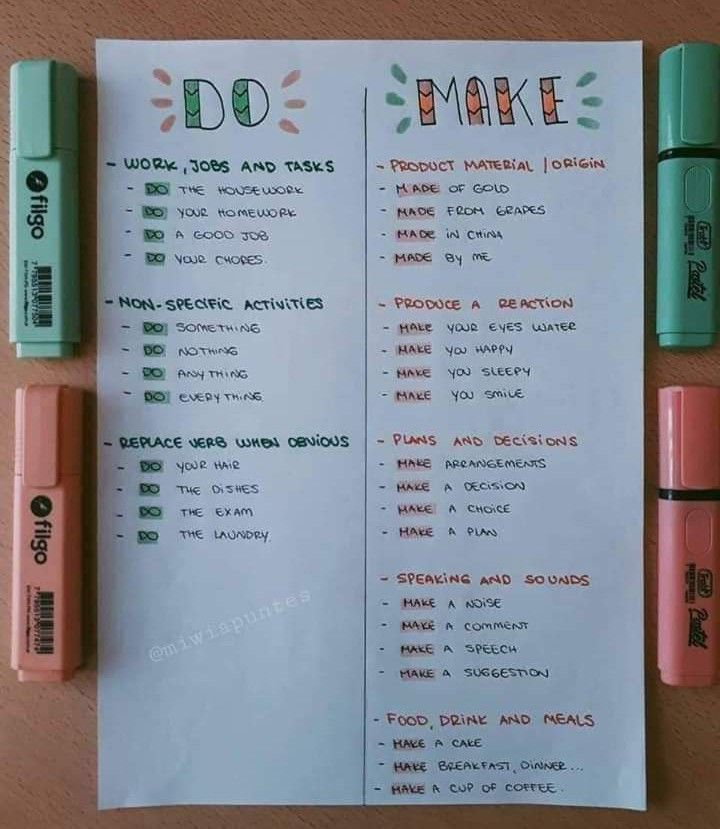 DO
- WORK, JOBS AND TASKS
- DO THE HOUSEWORK
- DO YOUR HOMEWORK
- DO A GOOD JOB
- DO YOUR CHORES.
- NON-SPECIFIC ACTIVITIES
- DO SOMETHING
- DO NOTHING
- DO ANYTHING
- DO EVERYTHING
- REPLACE VERB WHEN OBVIOUS
- DO YOUR HAIR
- DO THE DISHES
- DO THE EXAM
- DO THE LAUNDRY
@miwiapuntes
MAKE
- PRODUCT MATERIAL / ORIGIN
- MADE OF GOLD
- MADE FROM GRAPES
- MADE IN CHINA
- MADE BY ME
- PRODUCE A REACTION
- MAKE YOUR EYES WATER
- MAKE YOU HAPPY
- MAKE YOU SLEEPY
- MAKE YOU SMILE
- PLANS AND DECISIONS
- MAKE ARRANGEMENTS
- MAKE A DECISION
- MAKE A CHOICE
- MAKE A PLAN
- SPEAKING AND SOUNDS
- MAKE A NOISE
- MAKE A COMMENT
- MAKE A SPEECH
- MAKE A SUGGESTION
- FOOD, DRINK AND MEALS
- MAKE A CAKE
- MAKE BREAKFAST, DINNER...
- MAKE A CUP OF COFFEE.
filgo
filgo
Pastel
Pastel